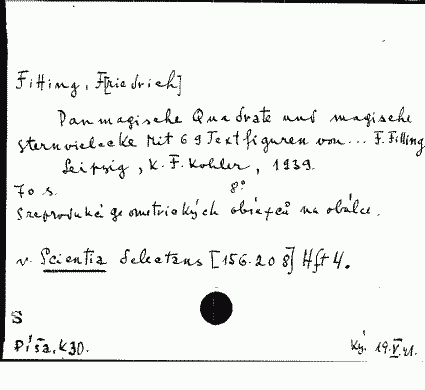 Fitting, F[riedrich]
Panmagische Quadrate und magische
sternvielecke Mit 69 Textfiguren von... F. Fitting
Leipzig, K. F. Kohler, 1939.
70 s. 8°
S reprodukcí geometrických obrazců na obálce.
v. Scientia delectans [156.208] Hft 4.
S
Píša, K30. Ký. 19.V.41.